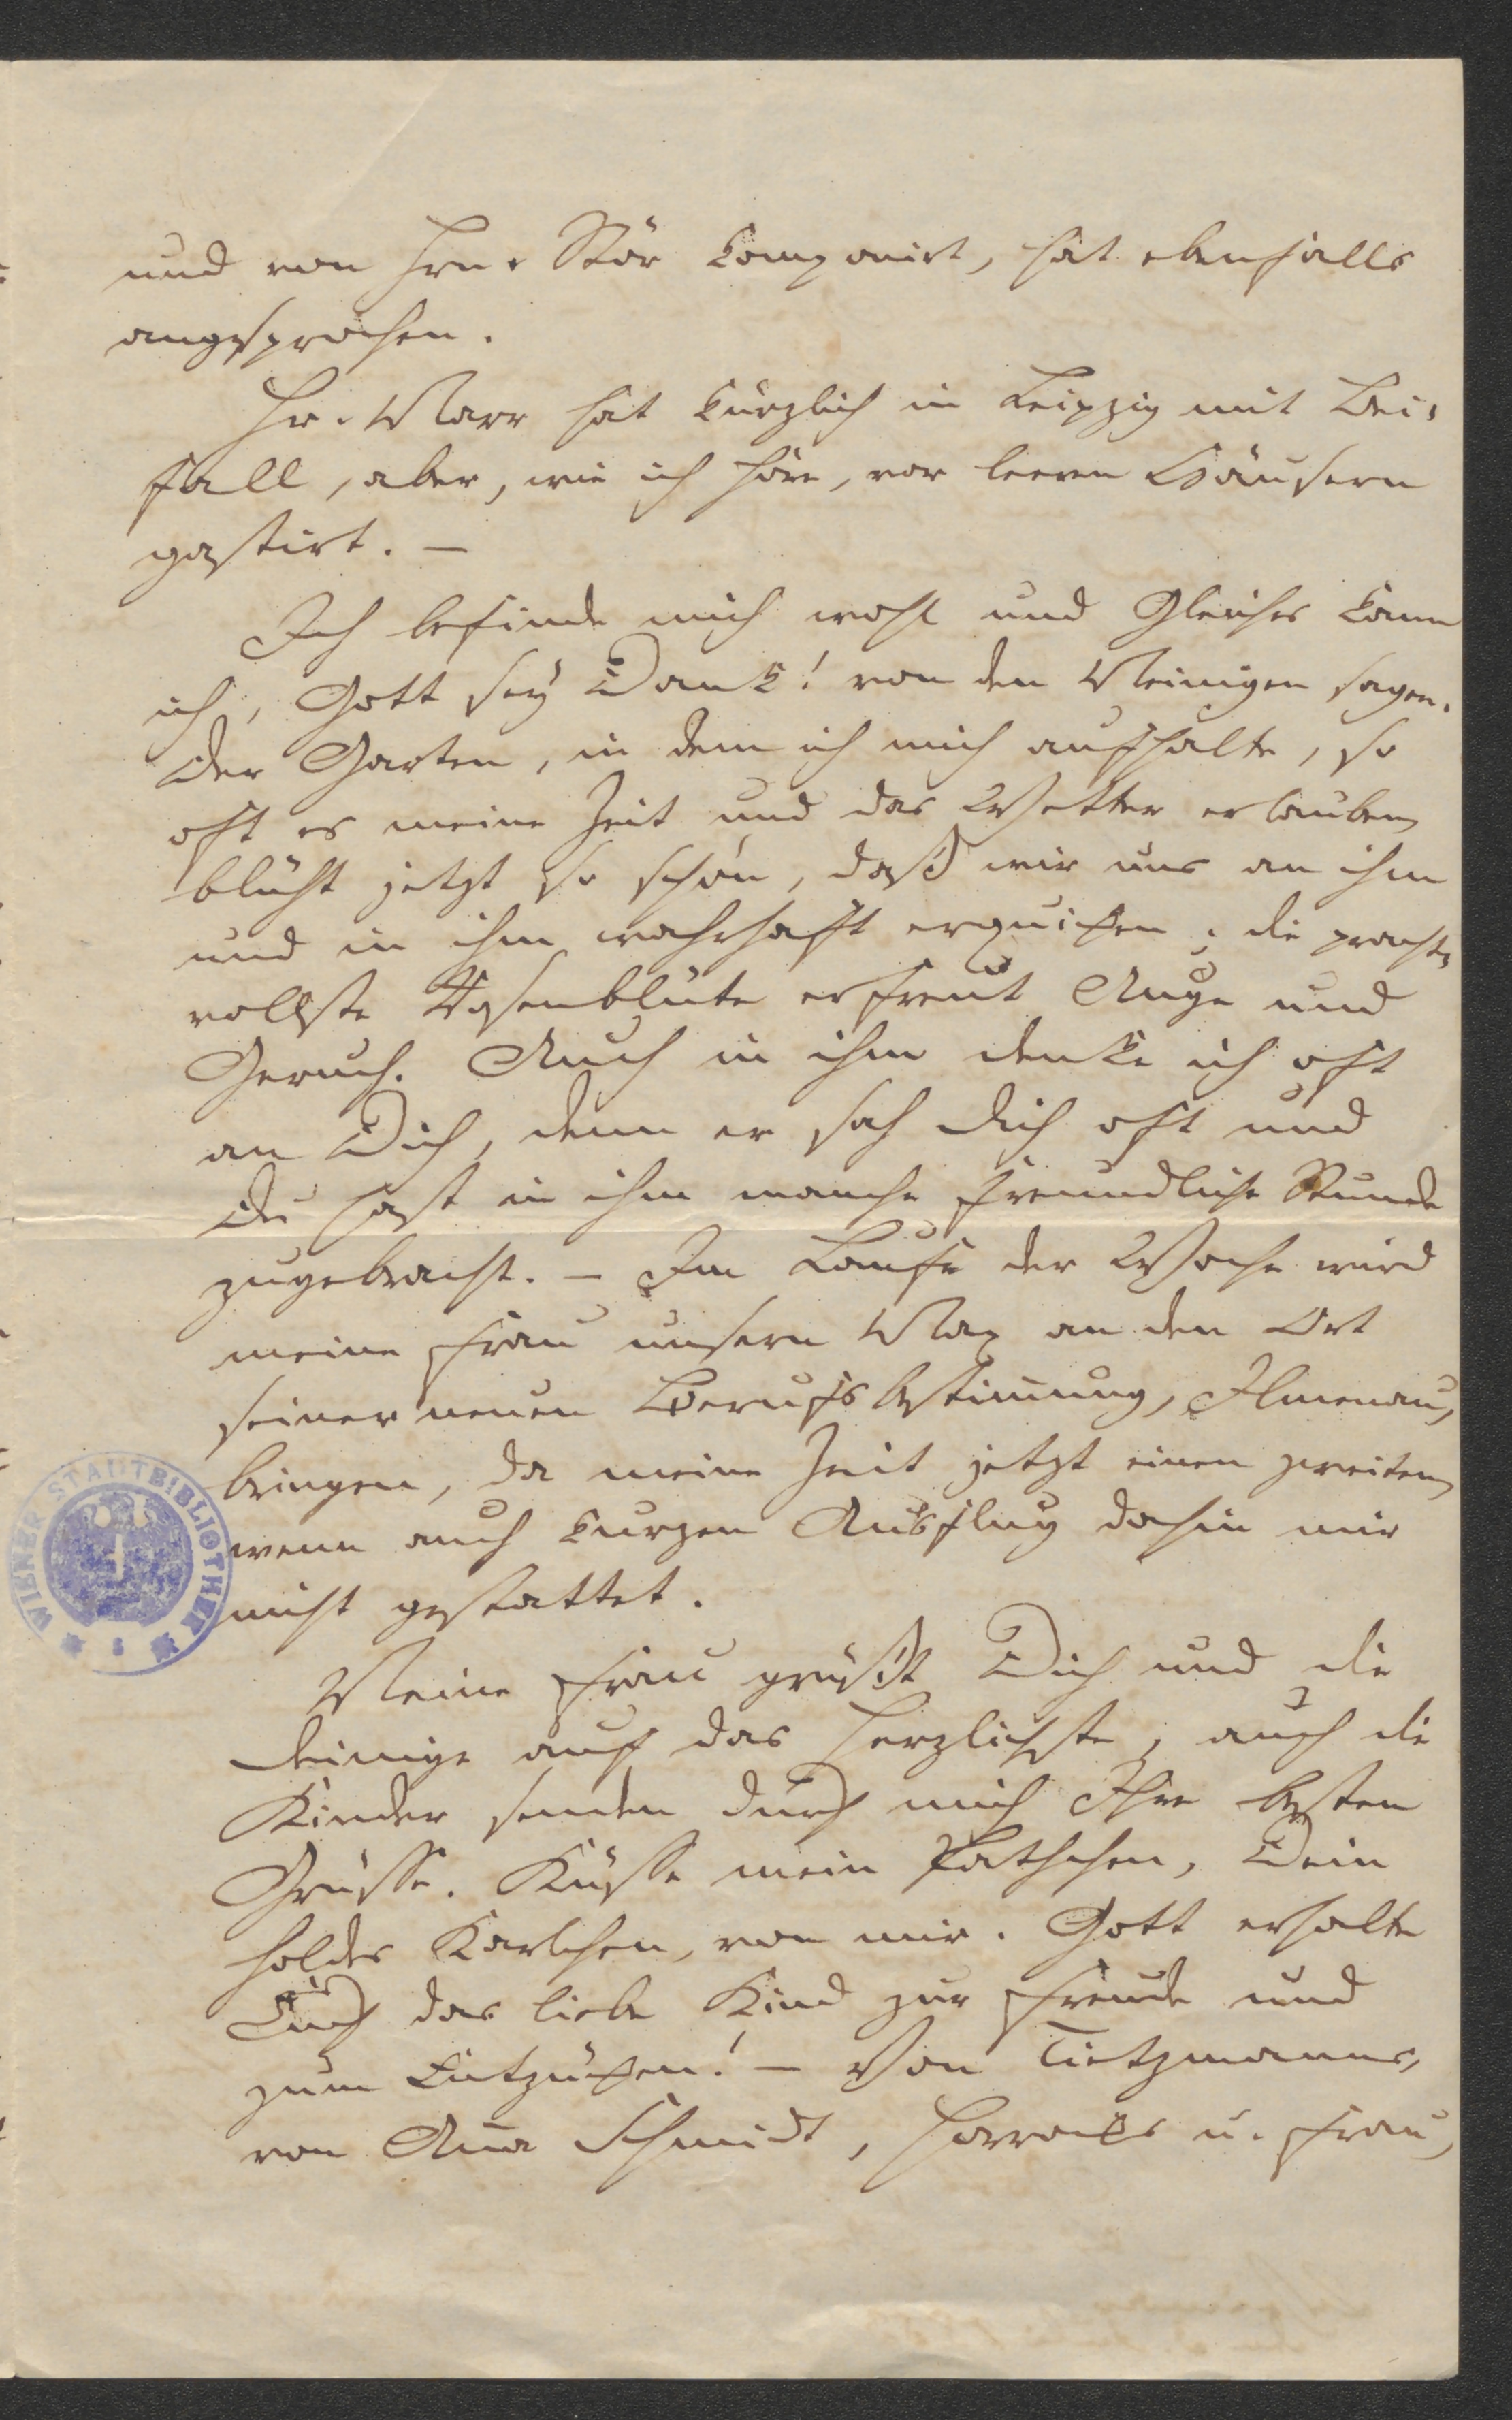 und von Hrn. Stör komponirt, hat ebenfalls
angesprochen.
Hr. Marr hat kürzlich in Leipzig mit Bei-
fall, aber, wie ich höre, vor leeren Häusern
gastirt. –
Ich befinde mich wohl und Gleiches kann
ich, Gott sey Dank! von den Meinigen sagen.
Der Garten, in dem ich mich aufhalte, so
oft es meine Zeit und das Wetter erlauben,
blüht jetzt so schön, daß wir uns an ihm
und in ihm wahrhaft erquicken; die pracht-
vollste Rosenblüte erfreut Auge und
Geruch. Auch in ihm denke ich oft
an Dich, denn er sah Dich oft und
Du hast in ihm manche freundliche Stunde
zugebracht. – Im Laufe der Woche wird
meine Frau unsern Max an den Ort
seiner neuen Berufsbestimmung, Ilmenau,
bringen, da meine Zeit jetzt einen zweiten,
wenn auch kurzen Ausflug dahin mir
nicht gestattet.
Meine Frau grüßt Dich und die
Deinige auf das Herzlichste; auch die
Kinder senden durch mich Ihre besten
Grüsse. Küsse mein Pathchen, Dein
holdes Karlchen, von mir. Gott erhalte
Euch das liebe Kind zur Freude und
zum Entzücken! – Von Tietzmanns,
von Ana Schmidt, u. Frau,
WIENER STADTBIBLIOTHEK